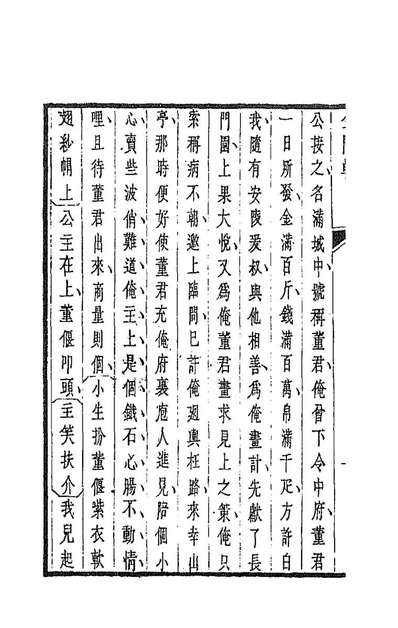 公接之名滿城中號稱董君俺曾下令中府董君
一日所發金滿百斤錢滿百萬帛滿千疋方許白
我隨有安陵爰叔與他相善爲俺畫計先獻了長
門園上果大悅又爲俺董君畫求見上之策俺只
索稱病不朝邀上臨問已許俺迴輿枉路來幸山
亭那時便好使董君充俺府裏庖人進見陪個小
心賣些波俏難道俺主上是個鐵石心腸不動情
哩且待董君出來商量則個小生扮董偃紫衣軟
翅紗帽上公主在上董偃叩頭主笑扶介我兒起